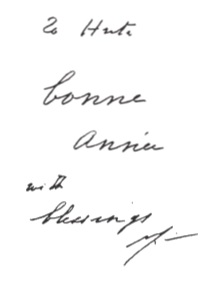 To Huta
bonne
année
with
blessings